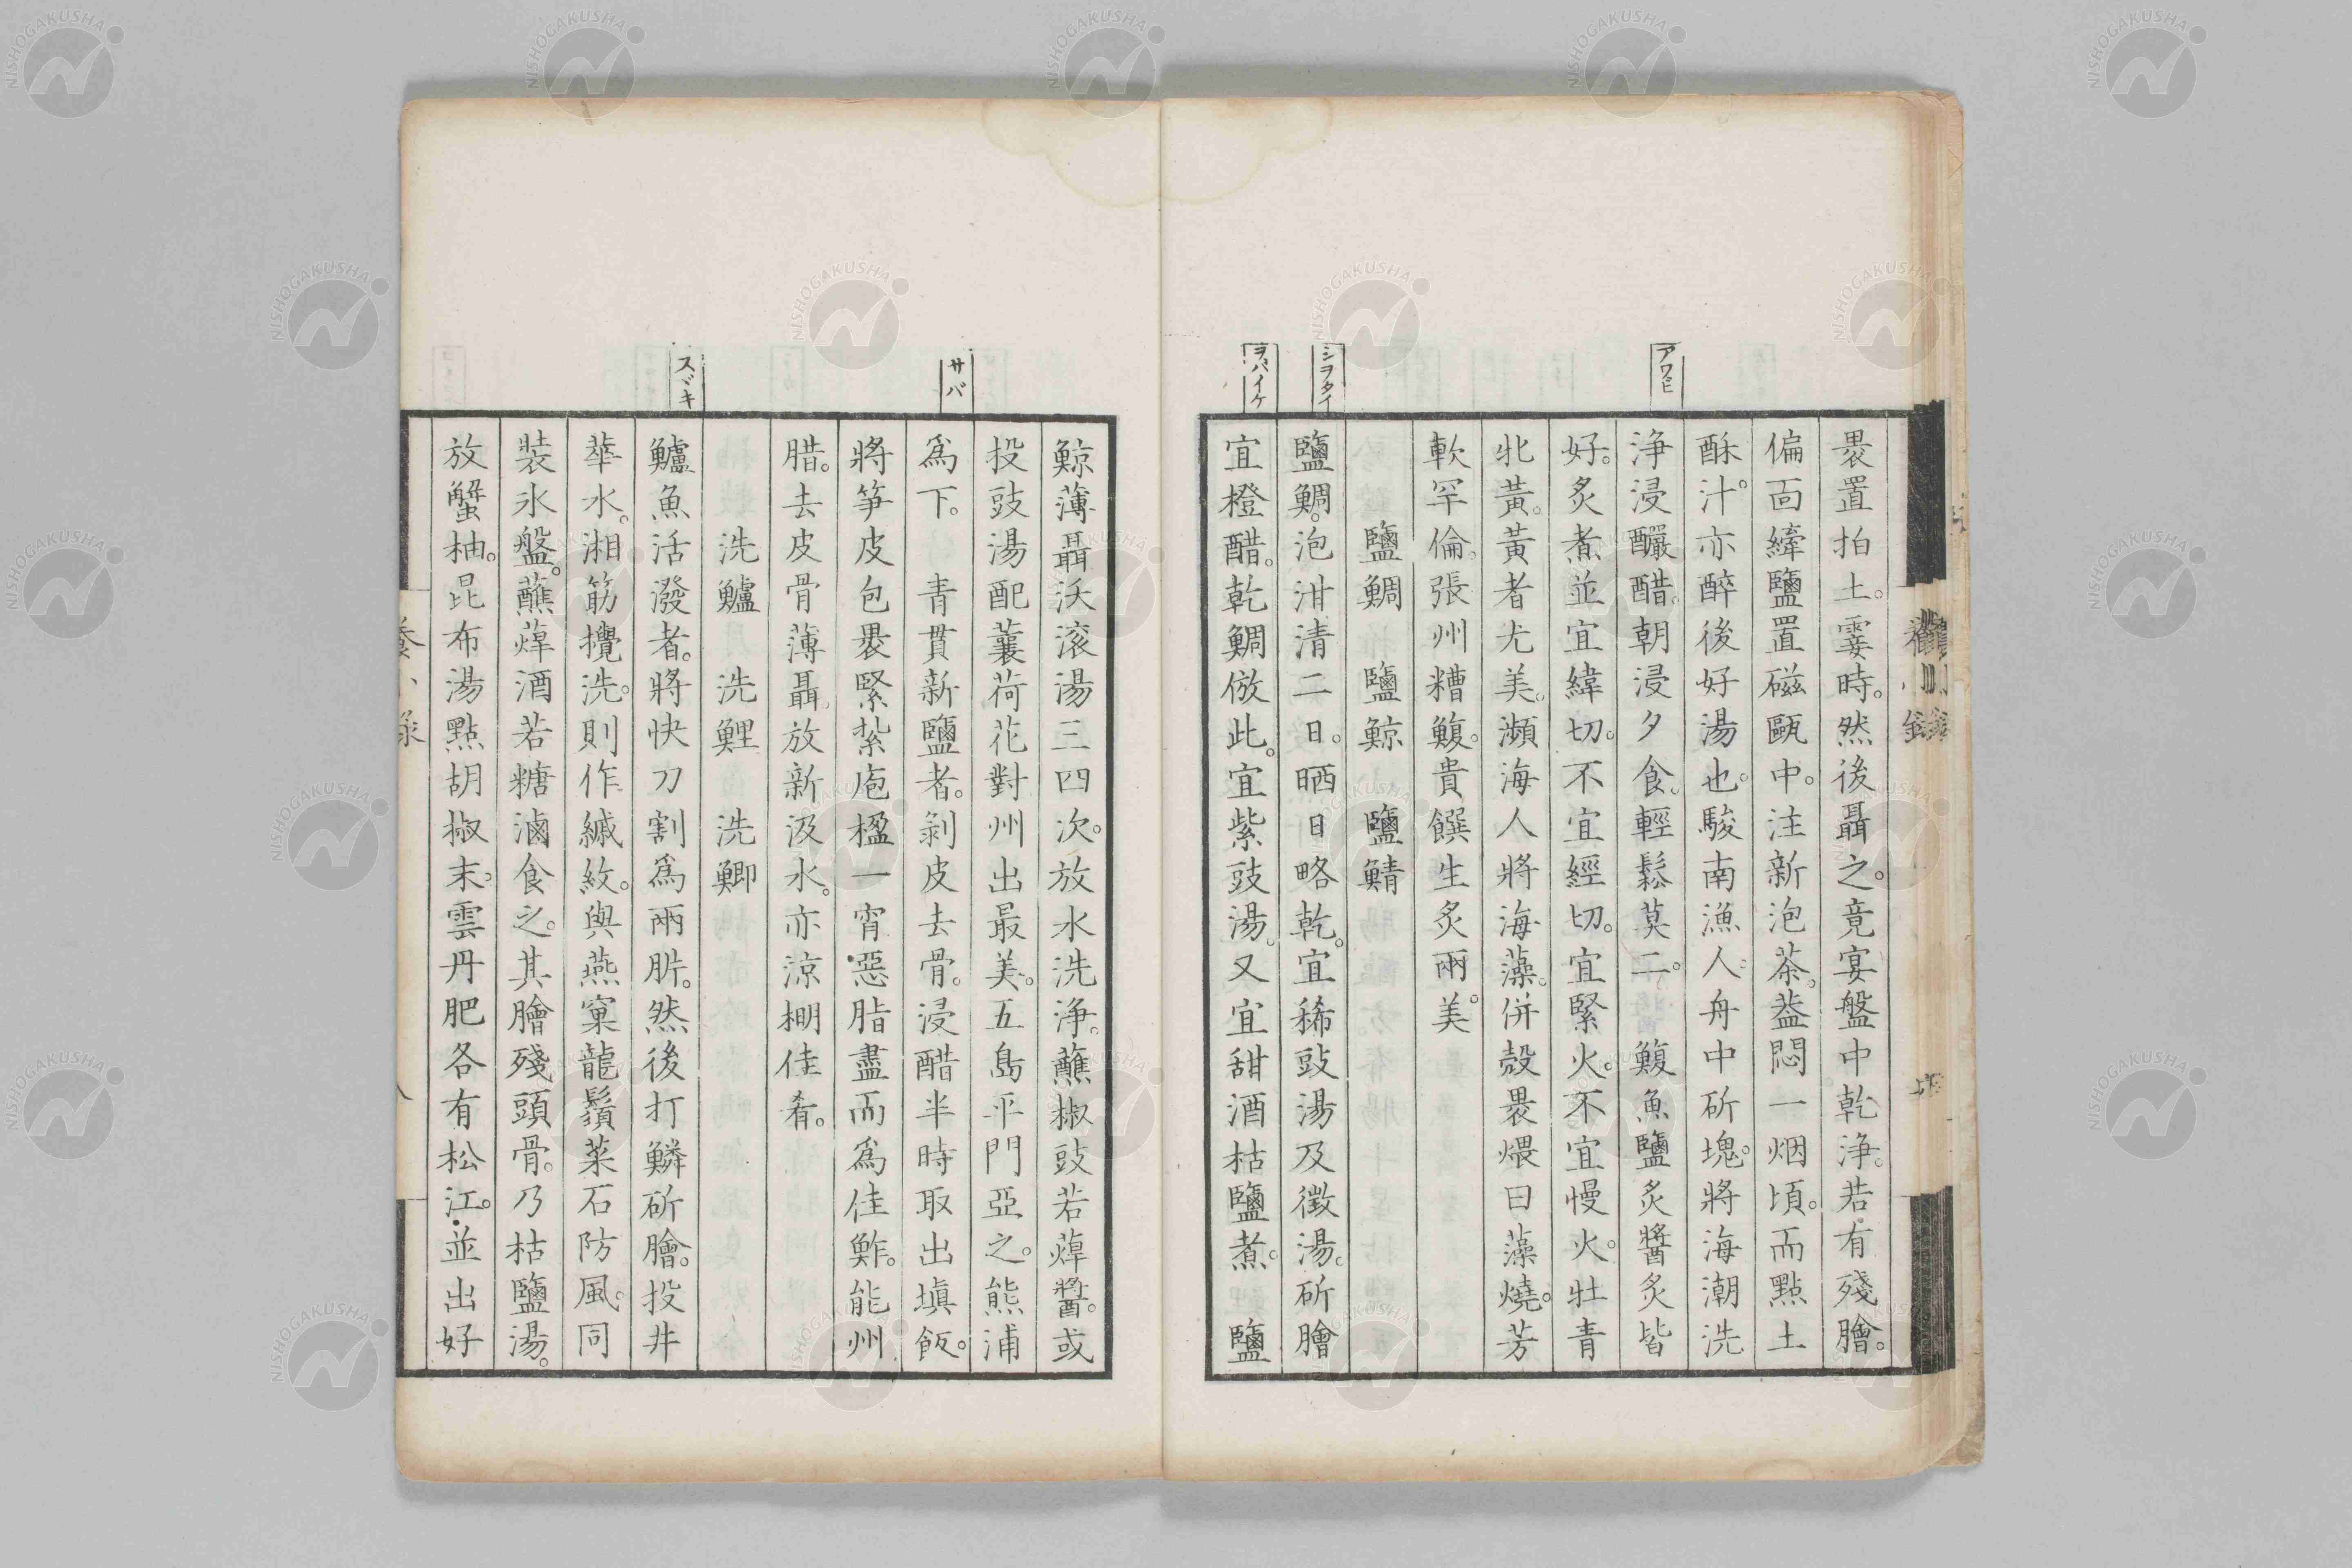 アワヒ
シヲタイ
ヲバイケ
褁置拍土。霎時。然後聶之。竟宴盤中乾淨。若有殘膾。
偏面縴鹽置磁甌中。注新泡茶。葢悶一烟頃。而點土
酥汁。亦醉後好湯也。駿南漁人。舟中斫塊。將海潮洗
淨浸釅醋。朝浸夕食。輕鬆莫二。鰒魚鹽炙醬炙皆
好。炙煮並宜緯切。不宜經切。宜緊火。不宜慢火。牡青
牝黃。黃者尤美。瀕海人將海藻。併殼褁煨曰藻燒。芳
軟罕倫。張州糟鰒。貴饌生炙兩美。
鹽鯛 鹽鯨 鹽鯖
鹽鯛。泡泔清二日。晒日略乾。宜稀豉湯及徵湯。斫膾
宜橙醋。乾鯛倣此。宜紫豉湯。又宜甜酒枯鹽煮。鹽
サバ
スヾキ
鯨薄聶沃滚湯三四次。放水洗淨。蘸椒豉若蔊醬。或
投豉湯配蘘荷花對州出最美。五島平門亞之。熊浦
爲下。青貫新鹽者。剝皮去骨。浸醋半時取出塡飯。
將笋皮包褁緊紮庖楹一宵惡脂盡而爲佳鮓。能州
腊。去皮骨薄聶。放新汲水。亦涼棚佳肴。
洗鱸 洗鯉 洗鯽
鱸魚活潑者。將快刀割爲兩䏑。然後打鱗斫膾。投井
華水。湘筯攪洗。則作縬紋。與燕窠龍鬚菜石防風。同
裝氷盤。蘸蔊酒若糖滷食之。其膾殘頭骨。乃枯鹽湯。
放蟹柚。昆布湯點胡椒末。雲丹肥各有松江。並出好